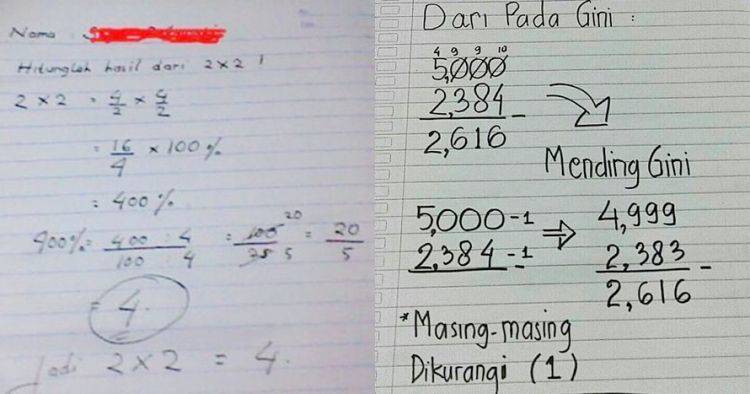 Nama :
Hitunglah hasil dari 2 x 2 !
2 x 2 = 4/2 x 4/2
= 16/4 x 100 %
= 400 %
400% = 400 : 4 / 100 : 4 = 100 20 / 25 5 = 20/5
= 4.
Jadi 2 x 2 = 4.
Dari Pada Gini :
4 9 9 10
5,000
2,384
2,616 -
Mending Gini
5,000 -1 ⇒ 4,999
2,384 -1 2,383
2,616 -
*Masing-masing
Dikurangi (1)